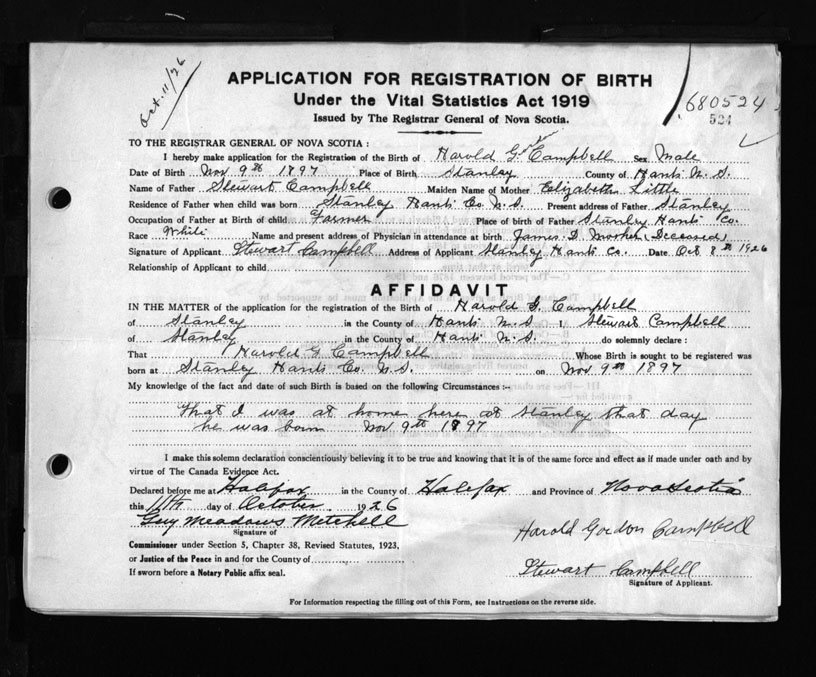 Oct. 11/26
APPLICATION FOR REGISTRATION OF BIRTH
Under the Vital Statistics Act 1919
Issued by The Registrar General of Nova Scotia.
680524
524
TO THE REGISTRAR GENERAL OF NOVA SCOTIA :
I hereby make application for the Registration of the Birth of Harold G. Campbell Sex Male
Date of Birth Nov 9th 1897 Place of Birth Stanley County of Hants N. S.
Name of Father Stewart Campbell Maiden Name of Mother Elizabeth Little
Residence of Father when child was born Stanley Hants Co. N.S. Present address of Father Stanley
Occupation of Father at Birth of child Farmer Place of birth of Father Stanley Hants Co.
Race White Name and present address of Physician in attendance at birth James D. Deceased
Signature of Applicant Stewart Campbell Address of Applicant Stanley Hants Co. Date Oct 8th 1926
Relationship of Applicant to child
AFFIDAVIT
IN THE MATTER of the application for the registration of the Birth of Harold G. Campbell
of Stanley in the County of Hants N.S I, Stewart Campbell
of Stanley in the County of Hants N.S. do solemnly declare :
That Harold G Campbell Whose Birth is sought to be registered was
born at Stanley Hants Co. N.S. on Nov 9th 1897
My knowledge of the fact and date of such Birth is based on the following Circumstances :-
That I was at home here at Stanley that day
he was born Nov 9th 1897
I make this solemn declaration conscientiously believing it to be true and knowing that it is of the same force and effect as if made under oath and by
virtue of The Canada Evidence Act.
Declared before me at Halifax in the County of Halifax and Province of Nova Scotia
this 11th day of October 1926
Guy Meadows Mitchell
Signature of
Harold Gordon Campbell
Commissioner under Section 5, Chapter 38, Revised Statutes, 1923,
or Justice of the Peace in and for the County of
Stewart Campbell
If sworn before a Notary Public affix seal.
Signature of Applicant.
For Information respecting the filling out of this Form, see Instructions on the reverse side.